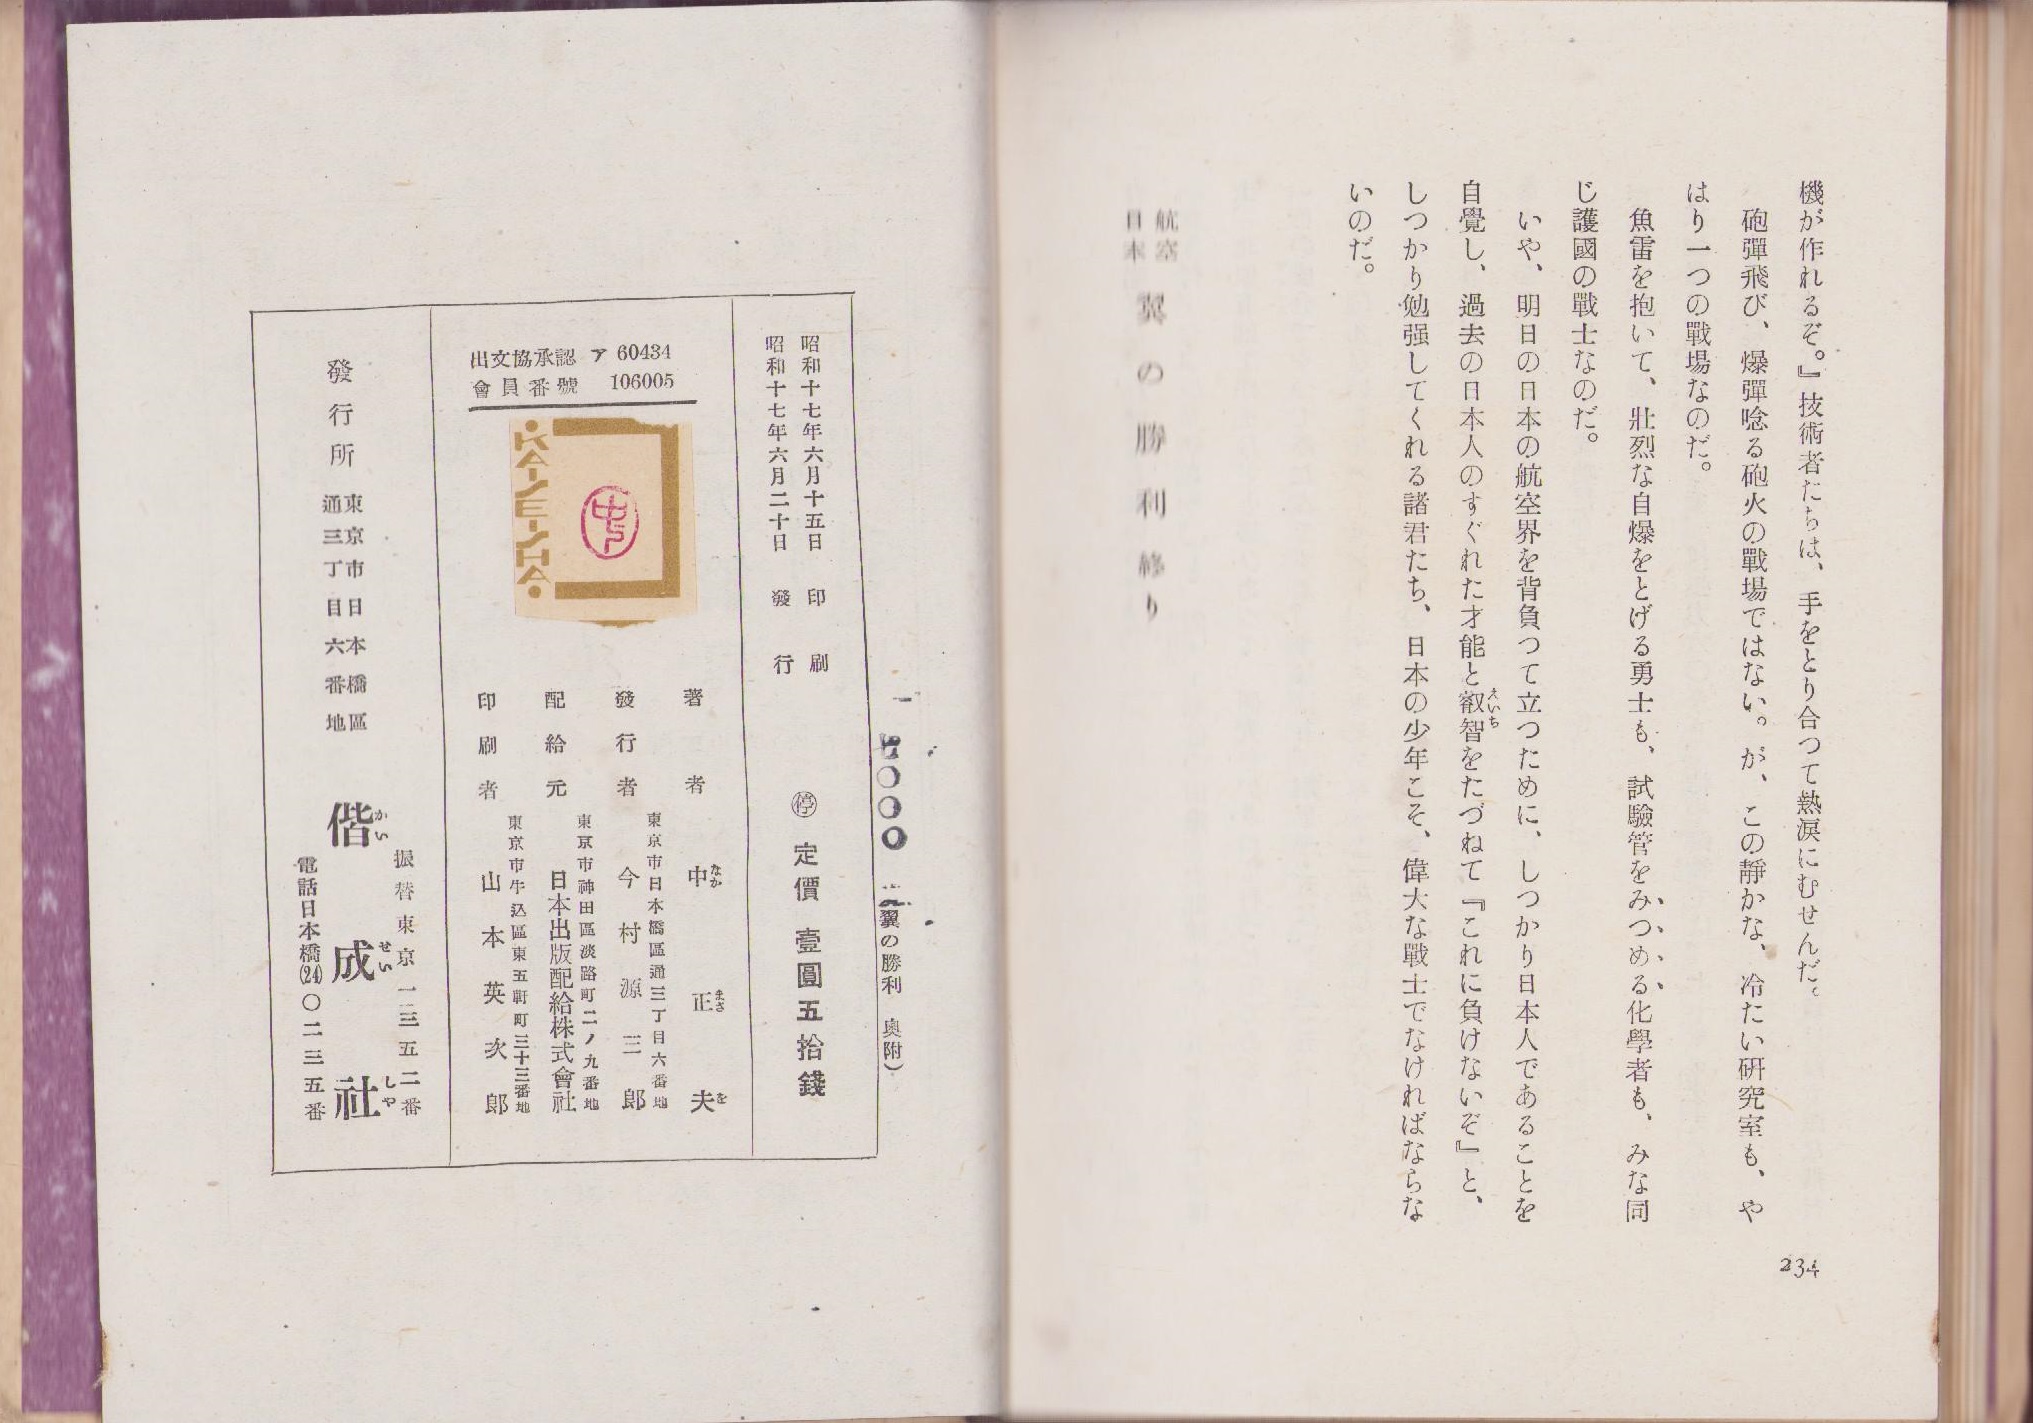 機が作れるぞ。』技術者たちは、手をとり合つて熱涙にむせんだ。
砲彈飛び、爆彈唸る砲火の戰場ではない。が、この靜かな、冷たい研究室も、や
はり一つの戰場なのだ。
魚雷を抱いて、壯烈な自爆をとげる勇士も、試驗管をみつめる化學者も、みな同
じ護國の戰士なのだ。
いや、明日の日本の航空界を背負つて立つために、しつかり日本人であることを
自覺し、過去の日本人のすぐれた才能と叡智をたづねて『これに負けないぞ』と、
えいち
しつかり勉强してくれる諸君たち、日本の少年こそ、偉大な戰士でなければならな
いのだ。
航空
日本
翼の勝利 終り
234
翼の勝利 奥附)
昭和十七年六月十五日 印刷
昭和十七年六月二十日 發行
停 定價 壹圓五拾錢
出文協承認 ア 60434
會員番號 106005
KAISEISHA
著者 中正夫
なか まさ を
發行者 東京市日本橋區通三丁目六番地
今村源三郎
配給元 東京市神田區淡路町二ノ九番地
日本出版配給株式會社
印刷者 東京市牛込區東五軒町三十三番地
山本英次郎
發行所
東京市日本橋區
通三丁目六番地
偕成社
かい せい しや
振替東京一三五二番
電話日本橋(24)〇二三五番